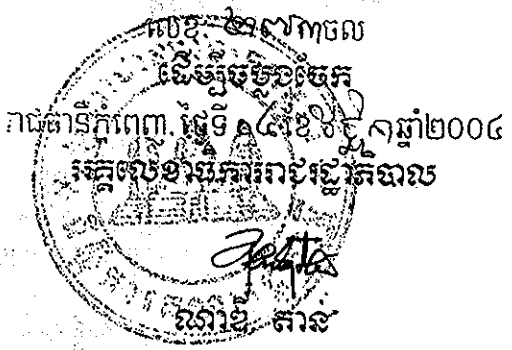 លេខ: ចល
ដើម្បីចម្លងចែក
រាជធានីភ្នំពេញ, ថ្ងៃទី ១៤ ខែ ឆ្នាំ២០០៤
អគ្គលេខាធិការរាជរដ្ឋាភិបាល
ណាឌី តាន់